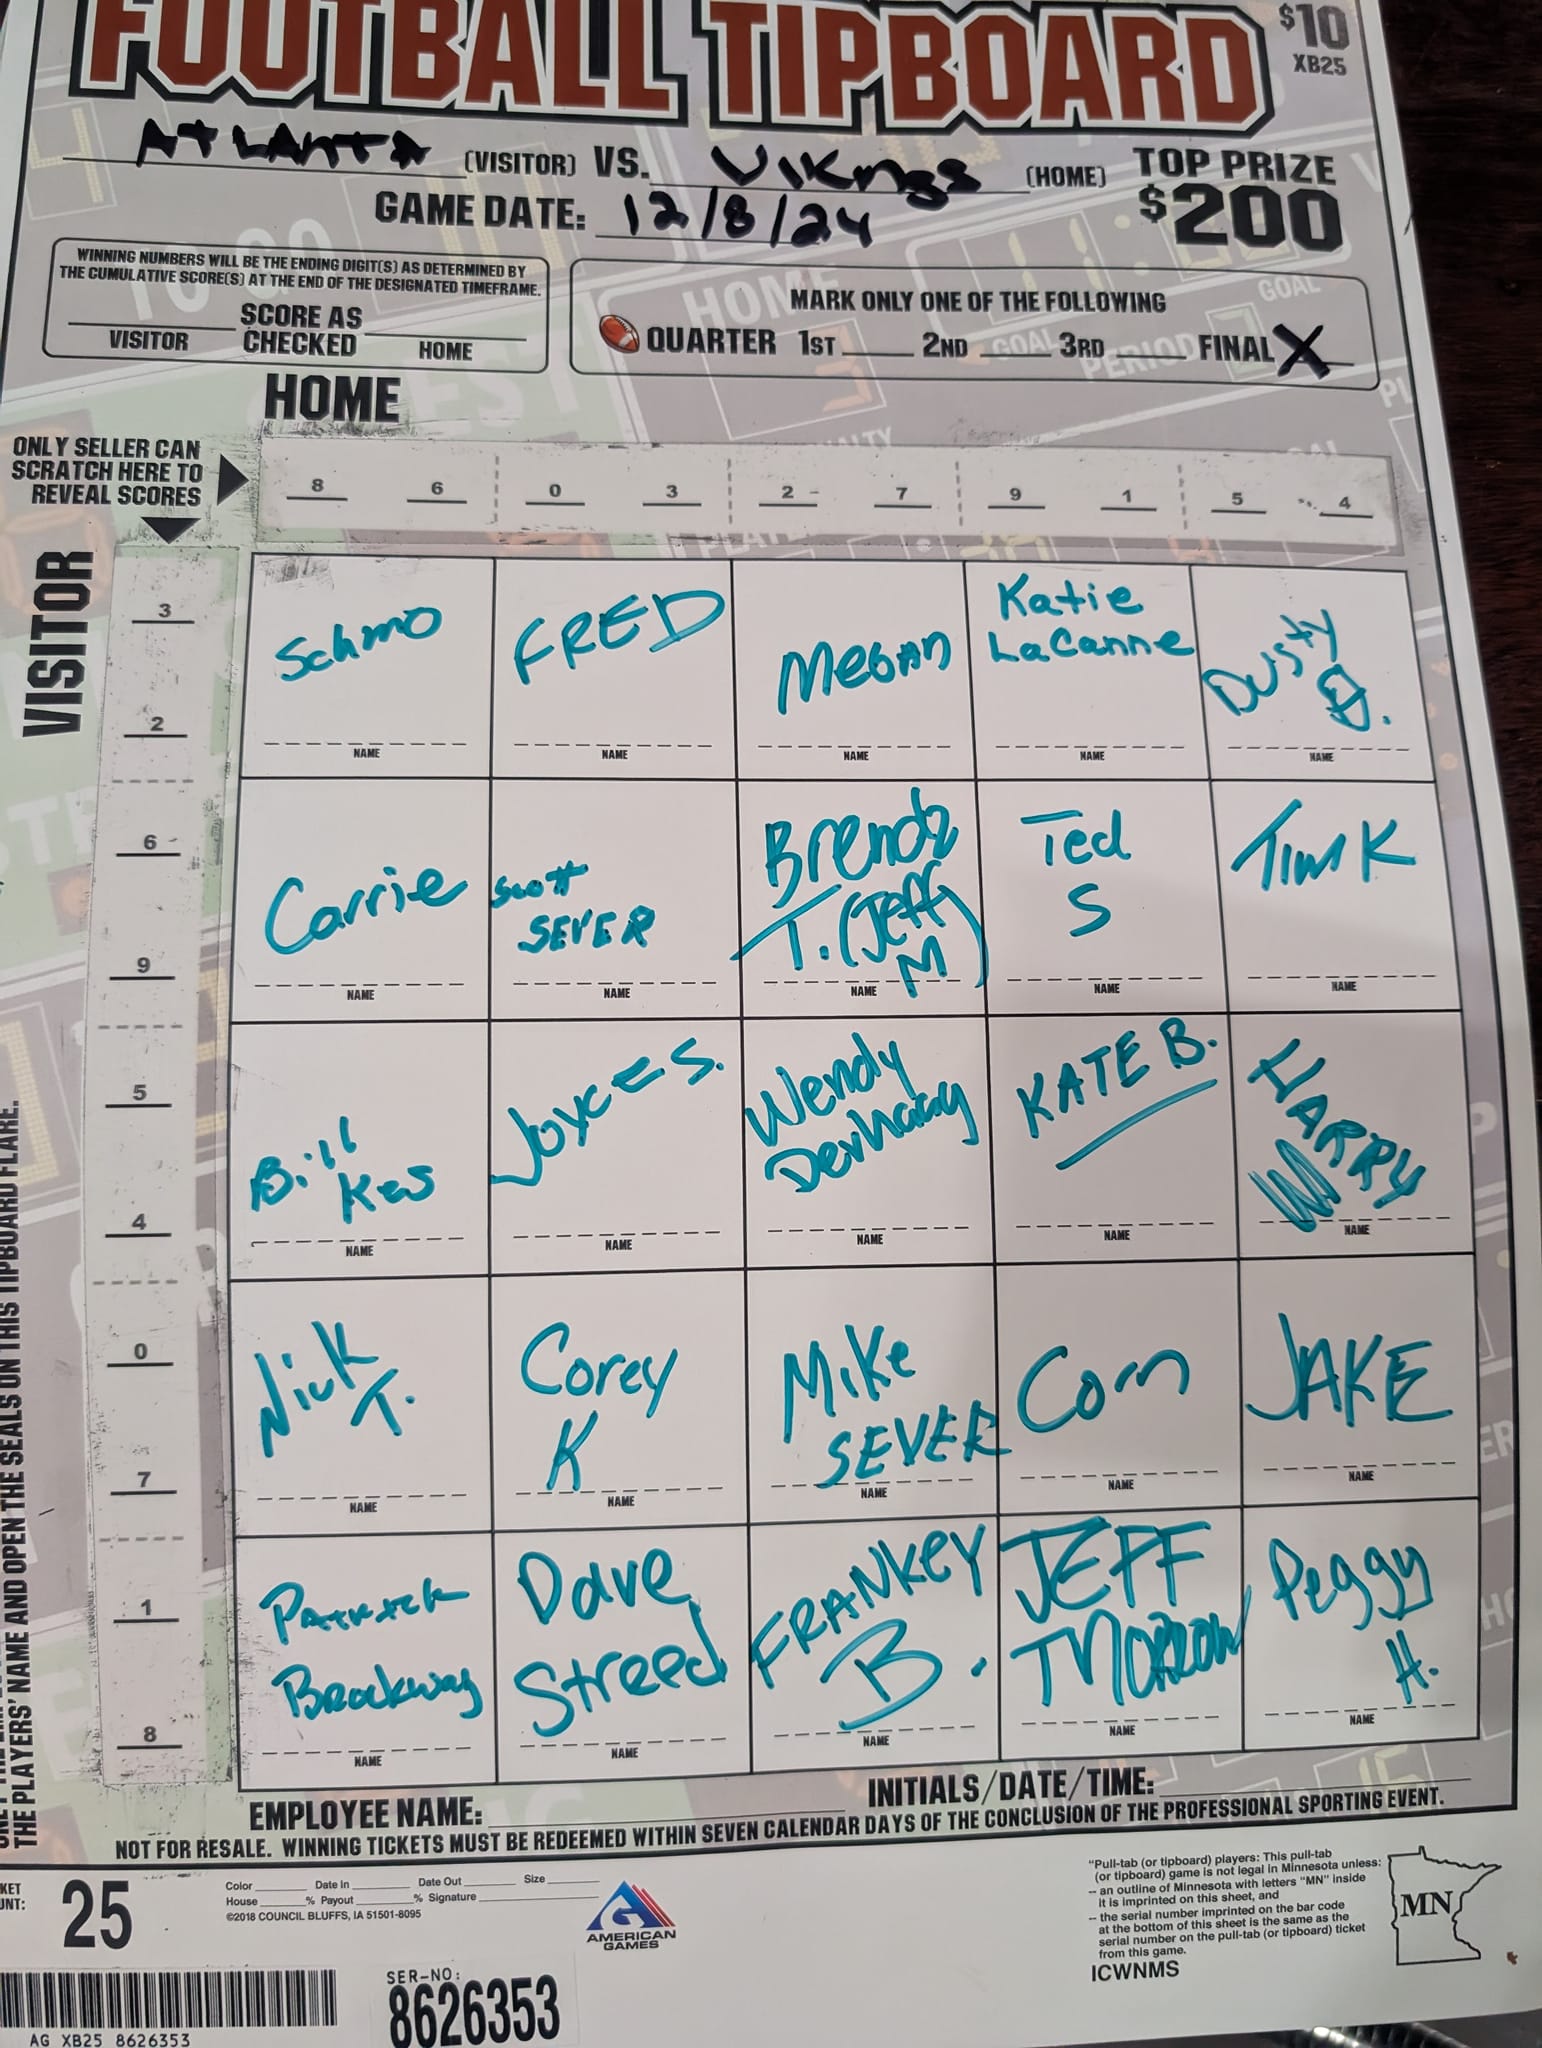 FOOTBALL TIPBOARD
$10
XB25
ATLANTA (VISITOR) VS. VIKINGS (HOME)
TOP PRIZE
$200
GAME DATE: 12/8/24
WINNING NUMBERS WILL BE THE ENDING DIGIT(S) AS DETERMINED BY
THE CUMULATIVE SCORE(S) AT THE END OF THE DESIGNATED TIMEFRAME.
VISITOR SCORE AS CHECKED HOME
MARK ONLY ONE OF THE FOLLOWING
QUARTER 1ST 2ND 3RD FINAL X
HOME
ONLY SELLER CAN
SCRATCH HERE TO
REVEAL SCORES
8 6 0 3 2 7 9 1 5 4
VISITOR
3
2
Schmo
NAME
FRED
NAME
MEGAN
NAME
Katie
LaCanne
NAME
Dusty
D.
NAME
6
9
Carrie
NAME
Scott
SEVER
NAME
Brenda
T. (Jeff)
M
NAME
Ted
S
NAME
Tim K
NAME
5
4
Bill
Kes
NAME
JOYCE S.
NAME
Wendy
NAME
KATE B.
NAME
HARRY
NAME
0
7
Nick
T.
NAME
Corey
K
NAME
MIKe
SEVER
NAME
Corn
NAME
JAKE
NAME
1
8
Patrick
Brockway
NAME
Dave
Streed
NAME
FRANKEY
B.
NAME
JEFF
MORROW
NAME
Peggy
H.
NAME
EMPLOYEE NAME:
INITIALS/DATE/TIME:
NOT FOR RESALE. WINNING TICKETS MUST BE REDEEMED WITHIN SEVEN CALENDAR DAYS OF THE CONCLUSION OF THE PROFESSIONAL SPORTING EVENT.
THE PLAYERS' NAME AND OPEN THE SEALS ON THIS TIPBOARD FLARE.
25
Color Date In Date Out Size
House % Payout % Signature
©2018 COUNCIL BLUFFS, IA 51501-8095
AMERICAN
GAMES
"Pull-tab (or tipboard) players: This pull-tab
(or tipboard) game is not legal in Minnesota unless:
-- an outline of Minnesota with letters "MN" inside
it is imprinted on this sheet, and
-- the serial number imprinted on the bar code
at the bottom of this sheet is the same as the
serial number on the pull-tab (or tipboard) ticket
from this game.
ICWNMS
MN
AG XB25 8626353
SER-NO:
8626353